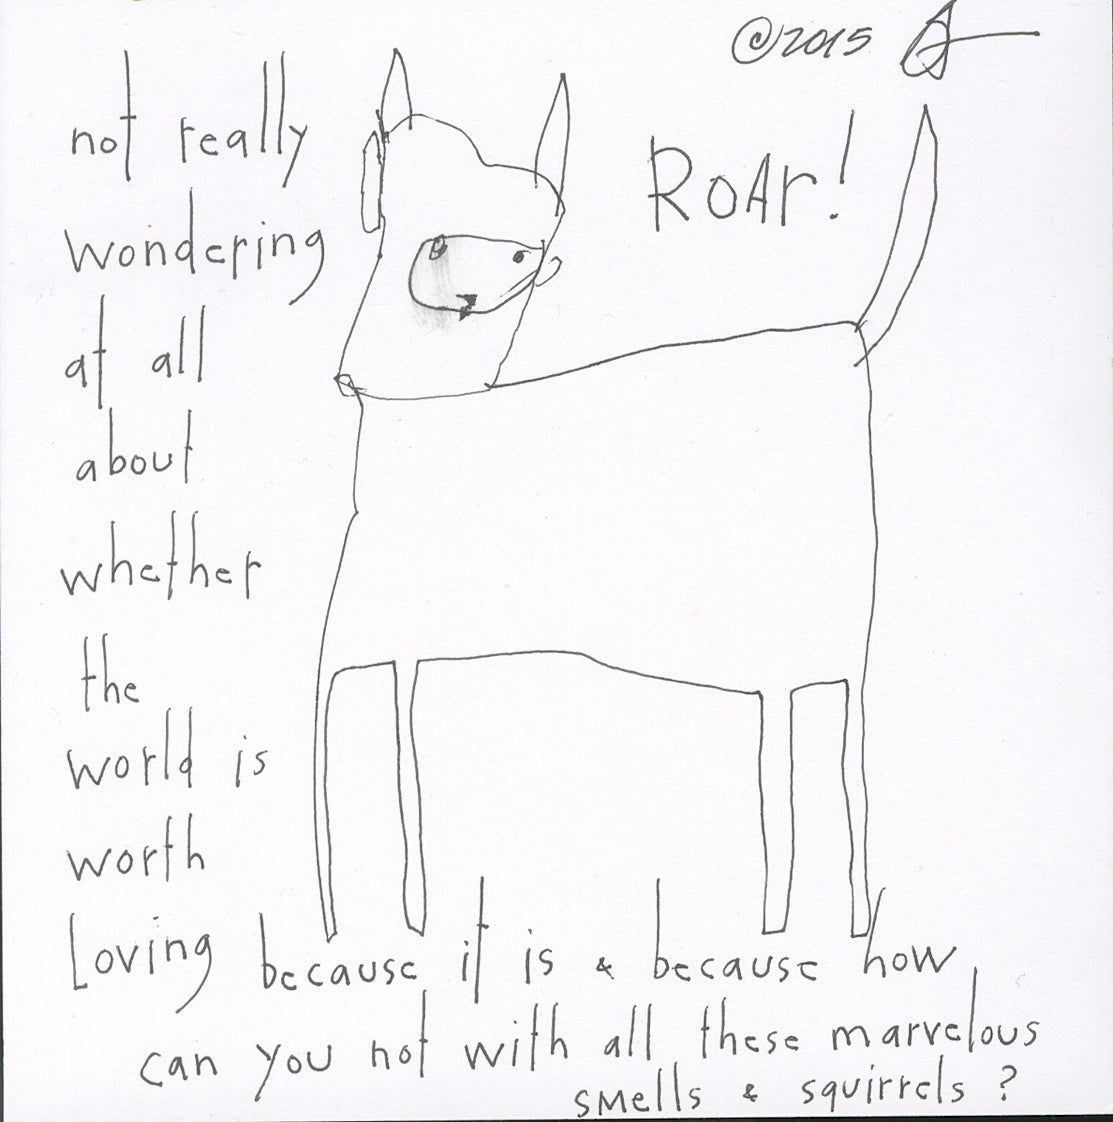 ©2015
ROAr!
not really
wondering
at all
about
whether
the
world is
worth
Loving because it is & because how
can you not with all these marvelous
smells & squirrels?